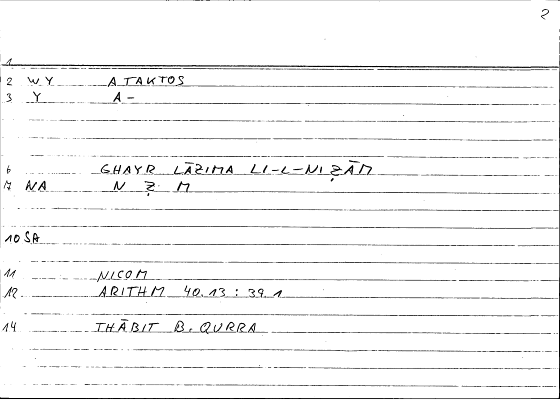 2
1
2 WY ATAKTOS
3 Y A-
6 GHAYR LĀZIMA LI-L-NIẒĀM
7 NA N Ẓ M
10 SA
11 NICOM
12 ARITHM 40.13 : 39.1
14 THĀBIT B. QURRA